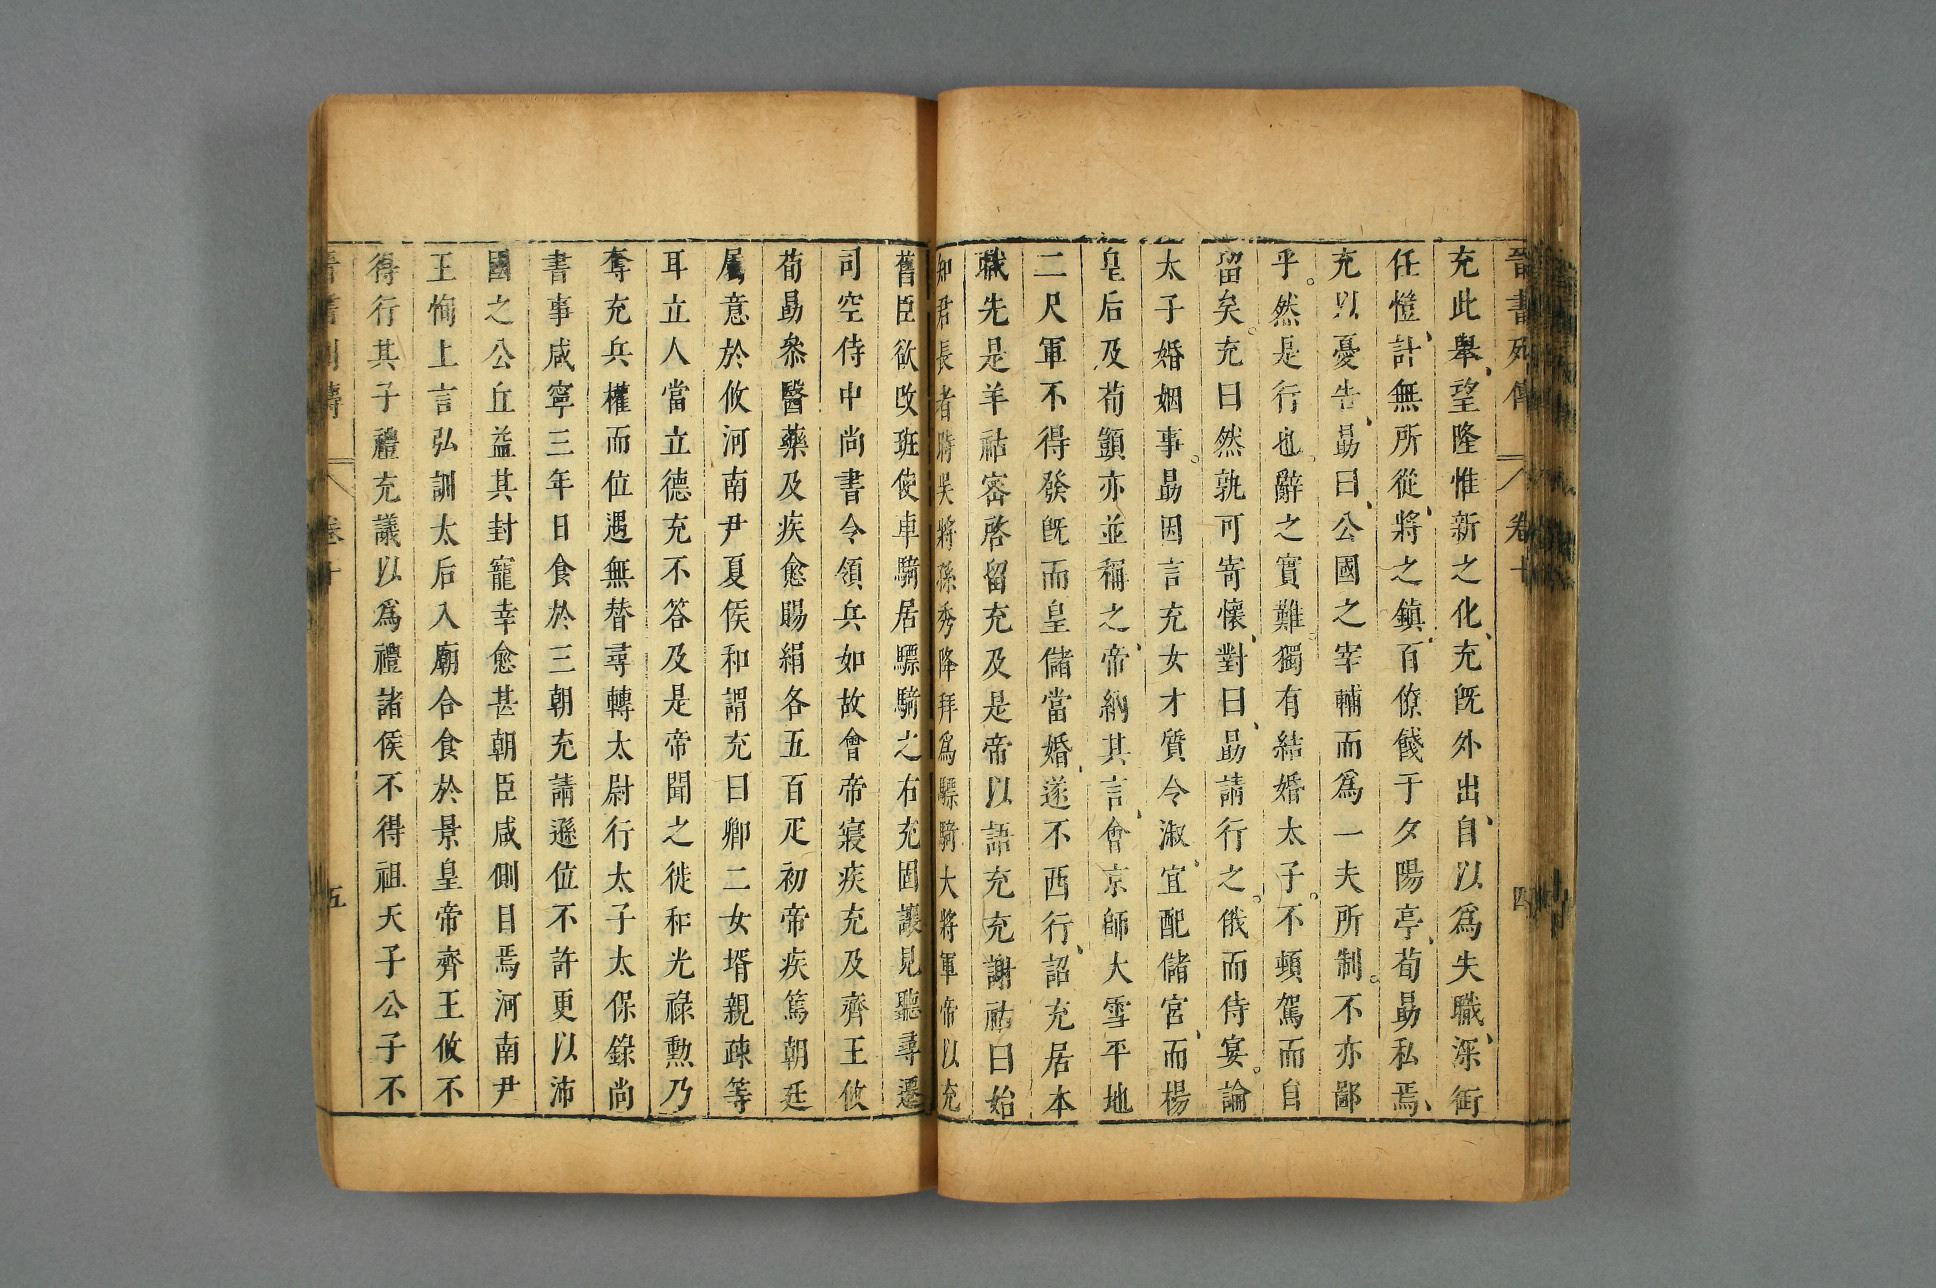 晉書列傳 卷十 四
充此舉望隆惟新之化充旣外出自以爲失職深銜
任愷計無所從將之鎮百僚餞于夕陽亭荀勗私焉
充以憂告勗曰公國之宰輔而爲一夫所制不亦鄙
乎然是行也辭之實難獨有結婚太子不頓駕而自
留矣充曰然孰可寄懷對曰勗請行之俄而侍宴論
太子婚姻事勗因言充女才質令淑宜配儲宮而楊
皇后及荀顗亦並稱之帝納其言會京師大雪平地
二尺軍不得發旣而皇儲當婚遂不西行詔充居本
職先是羊祜密啓留充及是帝以語充充謝祜曰始
知君長者時吳將孫秀降拜爲驃騎大將軍帝以充
舊臣欲改班使車騎居驃騎之右充固讓見聽尋遷
司空侍中尚書令領兵如故會帝寢疾充及齊王攸
荀勗參醫藥及疾愈賜絹各五百疋初帝疾篤朝廷
屬意於攸河南尹夏侯和謂充曰卿二女壻親疎等
耳立人當立德充不答及是帝聞之徙和光祿勲乃
奪充兵權而位遇無替尋轉太尉行太子太保錄尚
書事咸寧三年日食於三朝充請遜位不許更以沛
國之公丘益其封寵幸愈甚朝臣咸側目焉河南尹
王恂上言弘訓太后入廟合食於景皇帝齊王攸不
得行其子禮充議以爲禮諸侯不得祖天子公子不
晉書列傳 卷十 五